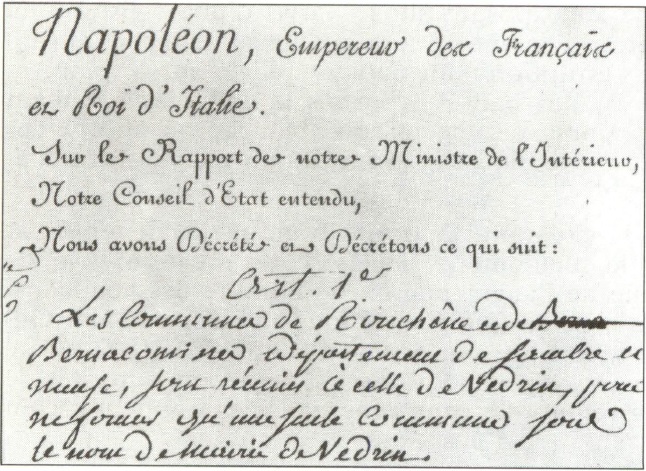 Napoléon, Empereur des Français
et Roi d'Italie.
Sur le Rapport de notre Ministre de l'Intérieur,
Notre Conseil d'Etat entendu,
Nous avons Décrété et Décrétons ce qui suit :
Art. 1er
Les Communes de et de
Département de Sambre et
meuse, sont réunies à celle de Vedrin, pour
ne former qu'une seule Commune sous
le nom de mairie de Vedrin.